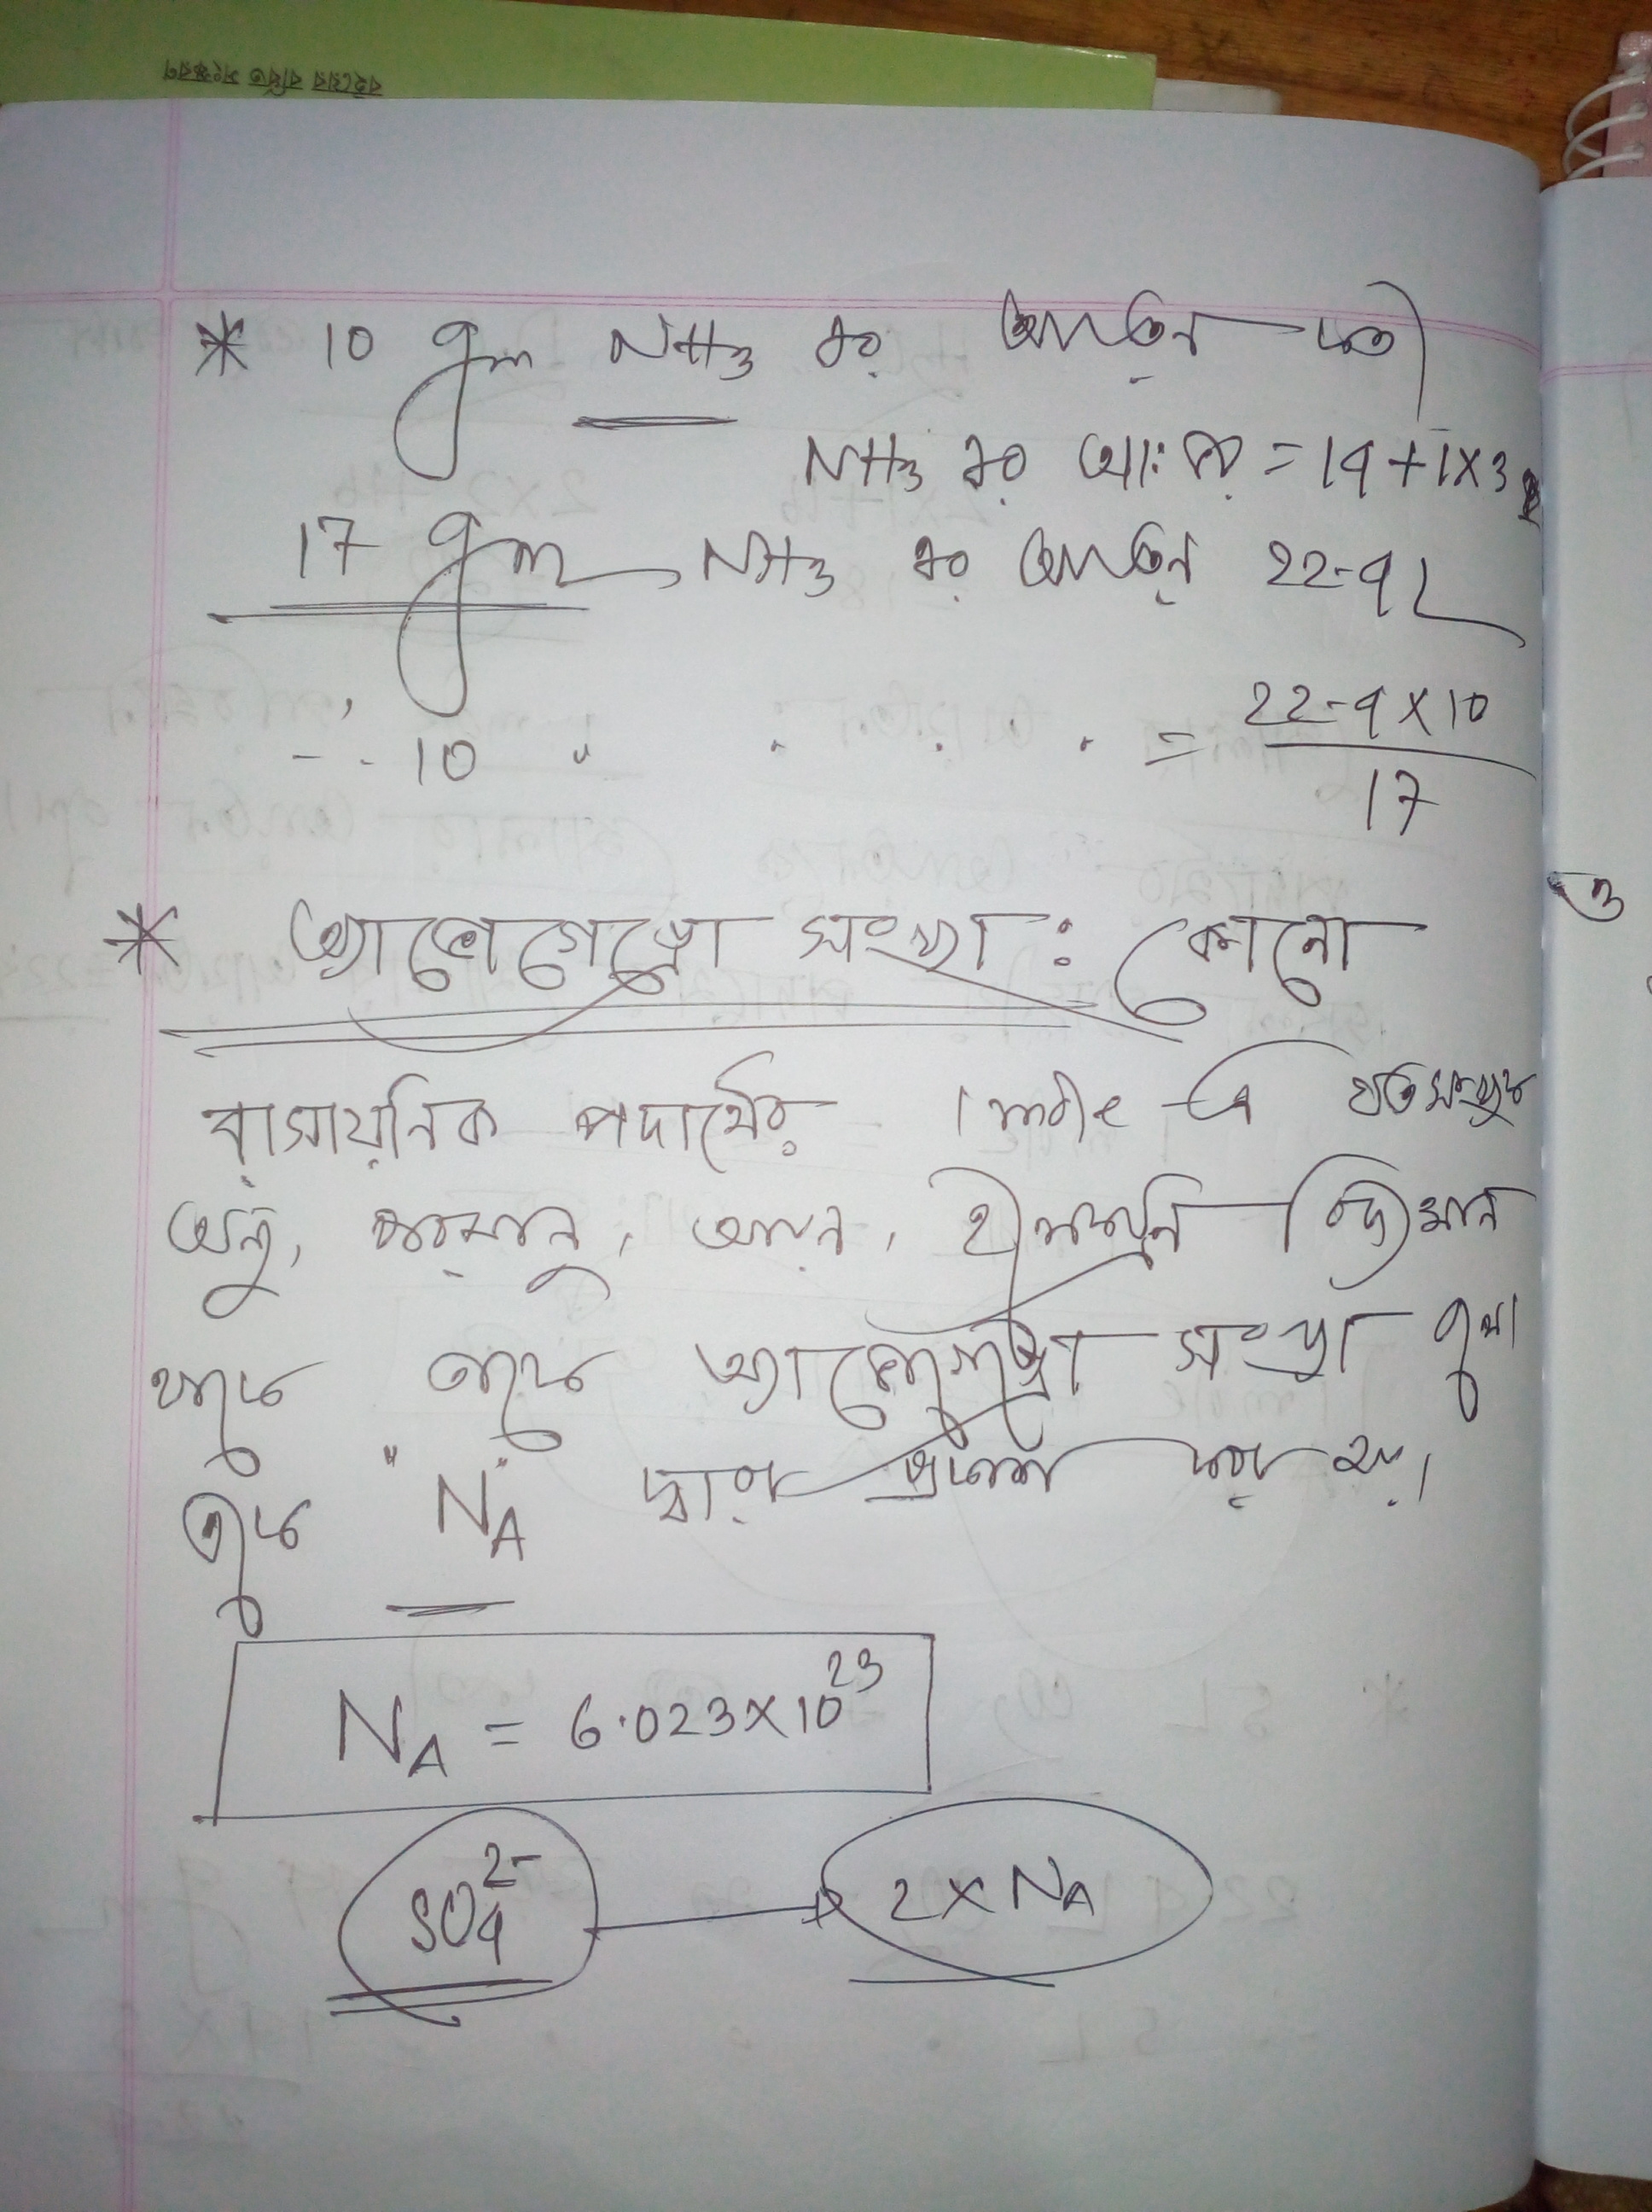 বইয়ের বর্ধিত সংস্করণ
* 10 gm NH3 এর আয়তন কত
NH3 এর আঃ ভর = 14+1×3
17 gm NH3 এর আয়তন 22.4 L
" 10 " " " " = 22.4×10
17
* অ্যাভোগেড্রো সংখ্যা : কোনো
রাসায়নিক পদার্থের 1 mole এ যতসংখ্যক
অনু, পরমানু, আয়ন, ইলেকট্রন বিদ্যমান
থাকে তাকে অ্যাভোগেড্রো সংখ্যা বলে।
একে "NA" দ্বারা প্রকাশ করা হয়।
NA = 6.023×10²³
SO4²⁻ → 2×NA
ও